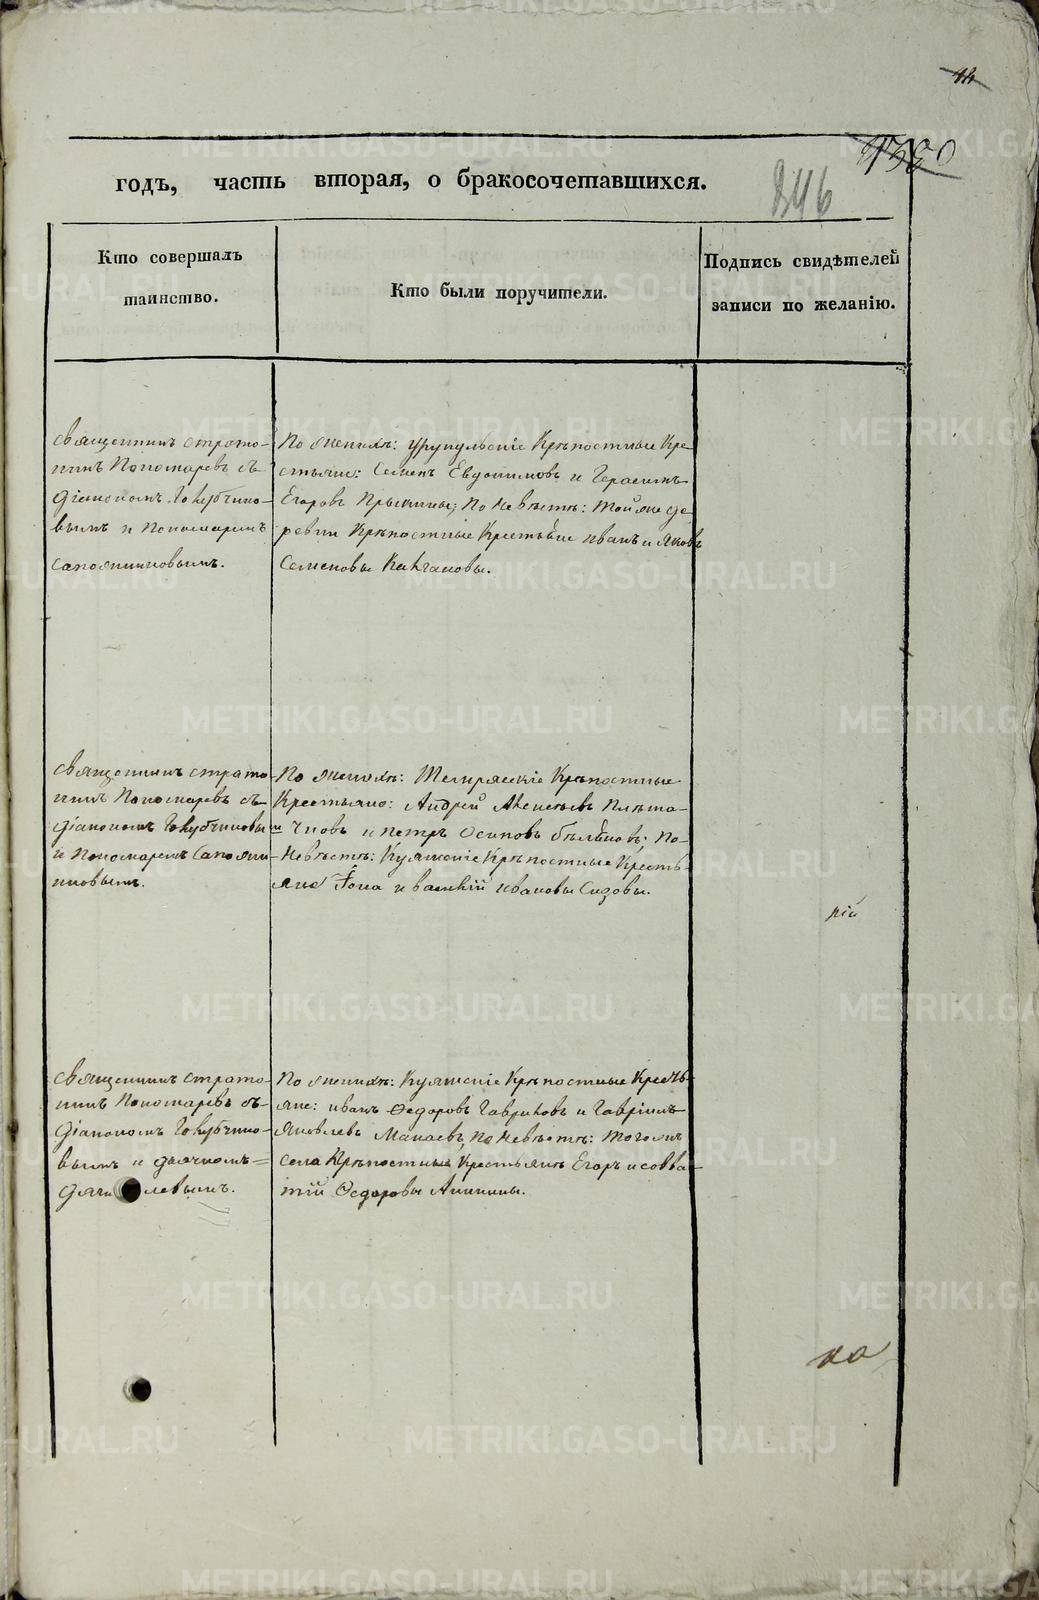 годъ, часть вторая, о бракосочетавшихся.
846
Кто совершалъ
таинство.
Кто были поручители.
Подпись свидѣтелей
записи по желанію.
Священникъ Страто-
никъ Пономаревъ съ
Діакономъ
вымъ и Пономаремъ
Сапожниковымъ.
По женихѣ: Урукульскіе Крѣпостные Кре
стьяне: Семенъ Евдокимовъ и Герасимъ
Егоровъ По невѣстѣ: той же де
ревни Крѣпостные Крестьяне Иванъ и Яковъ
Семеновы
Священникъ Страто
никъ Пономаревъ съ
Діакономъ
и Пономаремъ Сапожни
ковымъ.
По женихѣ: Крѣпостные
Крестьяне: Андрей Алексѣевъ
и Петръ Осиповъ По
невѣстѣ: Куяшскіе Крѣпостные Кресть
яне Фока и Василій Ивановы Сизовы.
рій
Священникъ Страто
никъ Пономаревъ съ
Діакономъ
вымъ и дьячкомъ
По женихѣ: Куяшскіе Крѣпостные Кресть
яне: Иванъ Федоровъ Гавриковъ и Гавріилъ
Яковлевъ По невѣстѣ: тогожъ
села Крѣпостные Крестьяне Егоръ и Савва
тій Федоровы Аникины.
ка
METRIKI.GASO-URAL.RU